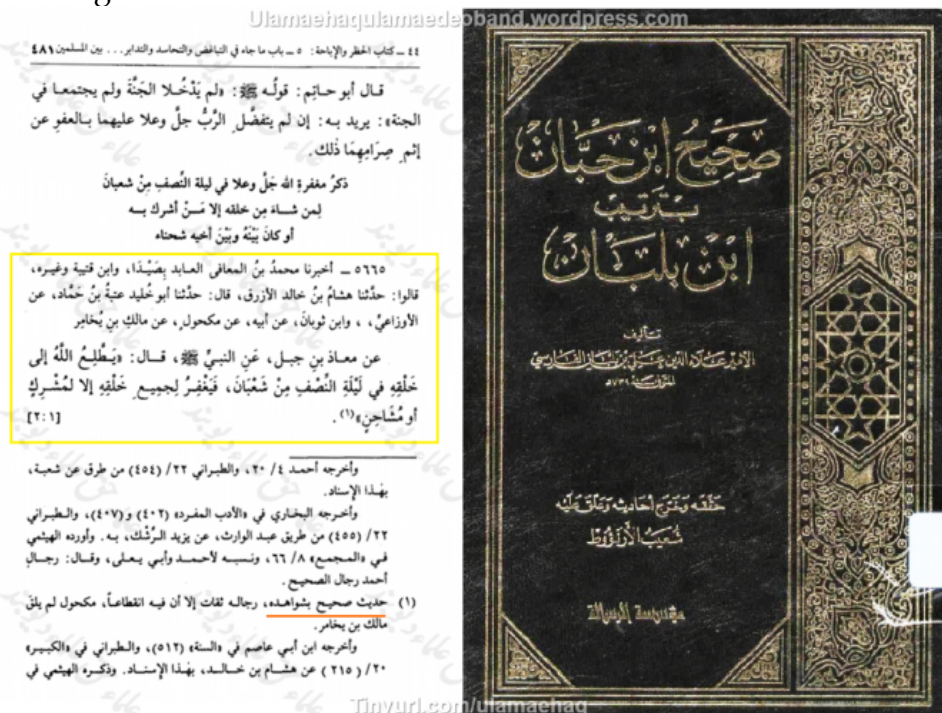 Ulamaehaqulamaedeoband.wordpress.com
٤٤ ــ كتاب الحظر والإباحة: ٥ ــ باب ما جاء في التباغض والتحاسد والتدابر... بين المسلمين ٤٨١
قال أبو حاتِم: قولُه ﷺ: «لم يَدْخُلا الجَنَّةَ ولم يجتمعا في
الجنة»: يريد به: إن لم يتفضل الرَّبُّ جلَّ وعلا عليهما بالعفوِ عن
إثمِ صِرامِهِمَا ذٰلك.
ذكرُ مغفرةِ الله جَلَّ وعلا في ليلة النِّصفِ مِنْ شعبانَ
لِمن شاءَ مِن خلقه إلا مَنْ أشرك به
أو كانَ بَيْنَهُ وبَيْنَ أخيه شحناء
٥٦٦٥ ــ أخبرنا محمدُ بنُ المعافى العابد بِصَيْدَا، وابن قتيبة وغيره،
قالوا: حدَّثنا هشامُ بنُ خالد الأزرق، قال: حدَّثنا أبو خُليد عتبةُ بنُ حَمَّاد، عن
الأوزاعيِّ، وابنِ ثوبانَ، عن أبيه، عن مكحول، عن مالكِ بنِ يُخامِر
عن معاذ بنِ جبل، عَنِ النبيِّ ﷺ، قال: «يَطَّلِعُ اللَّهُ إلى
خَلْقِهِ في لَيْلَةِ النِّصْفِ مِنْ شَعْبَانَ، فَيَغْفِرُ لِجميعِ خَلْقِهِ إلا لمُشْرِكٍ
أو مُشَاحِنٍ»(١). [٢:١]
وأخرجه أحمد ٢٠/٤، والطبراني ٢٢/(٤٥٤) من طرق عن شعبة،
بهٰذا الإسناد.
وأخرجه البخاري في «الأدب المفرد» (٤٠٢) و(٤٠٧)، والطبراني
٢٢/(٤٥٥) من طريق عبد الوارث، عن يزيد الرِّشْك، به. وأورده الهيثمي
في «المجمع» ٦٦/٨، ونسبه لأحمد وأبي يعلى، وقال: رجال
أحمد رجال الصحيح.
(١) حديث صحيح بشواهده، رجاله ثقات إلا أن فيه انقطاعاً، مكحول لم يلق
مالك بن يخامر.
وأخرجه ابن أبي عاصم في «السنة» (٥١٢)، والطبراني في «الكبير»
٢٠/(٢١٥) عن هشام بن خالد، بهٰذا الإسناد. وذكره الهيثمي في
صَحِيحُ ابْنِ حِبَّانَ
بِتَرْتِيبِ
ابْنِ بَلْبَانَ
تأليف
الأمير علاء الدين علي بن بلبان الفارسي
المتوفى سنة ٧٣٩هـ
حَقَّقَهُ وَخَرَّجَ أَحَادِيثَهُ وَعَلَّقَ عَلَيْهِ
شُعَيْبُ الأَرْنَؤُوطُ
مؤسسة الرسالة
Tinyurl.com/ulamaehaq